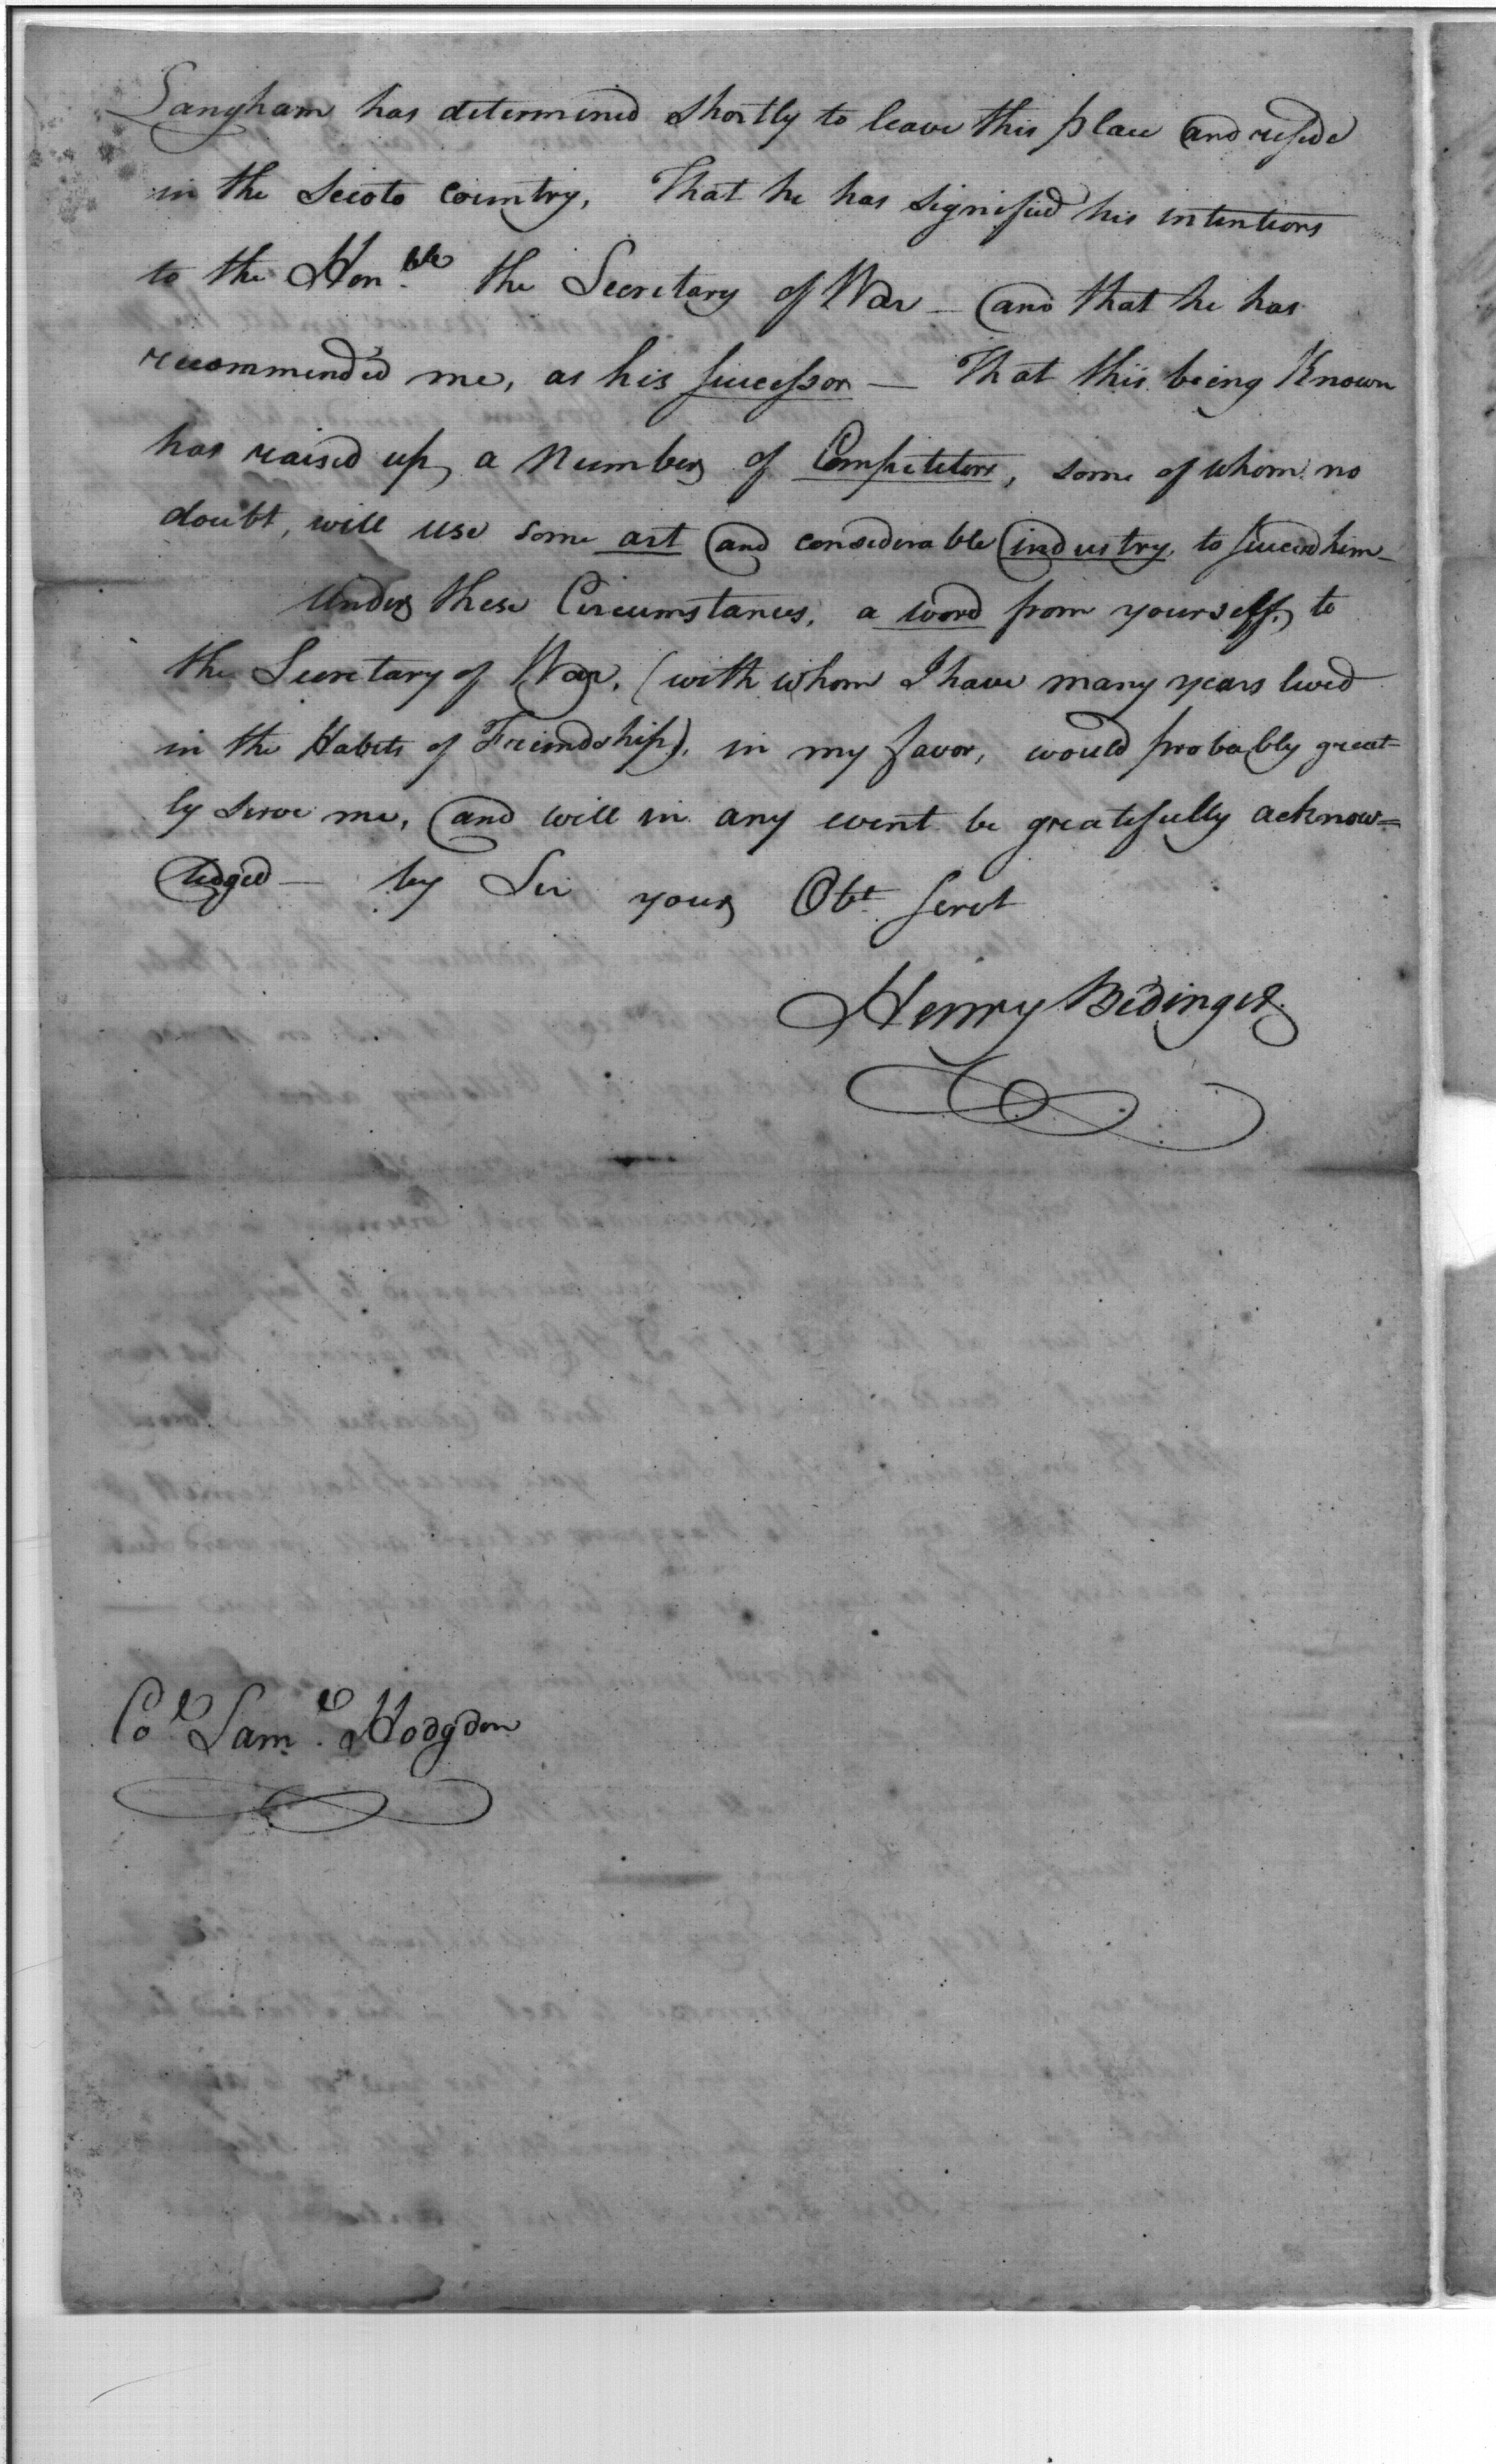 Langham has determined shortly to leave this place and reside
in the Scioto Country, That he has signified his intentions
to the Honble the Secretary of War — and that he has
recommended me, as his successor — That this being Known
has raised up, a Number of Competitors, some of whom no
doubt, will use some art and considerable industry, to succeed him —
Under these Circumstances, a word from yourself, to
the Secretary of War, (with whom I have many years lived
in the Habits of Friendship), in my favor, would probably great=
ly serve me, and will in any event be greatefully acknow=
ledged — by Sir your Obt Servt
Henry Bedinger
Col Saml Hodgdon